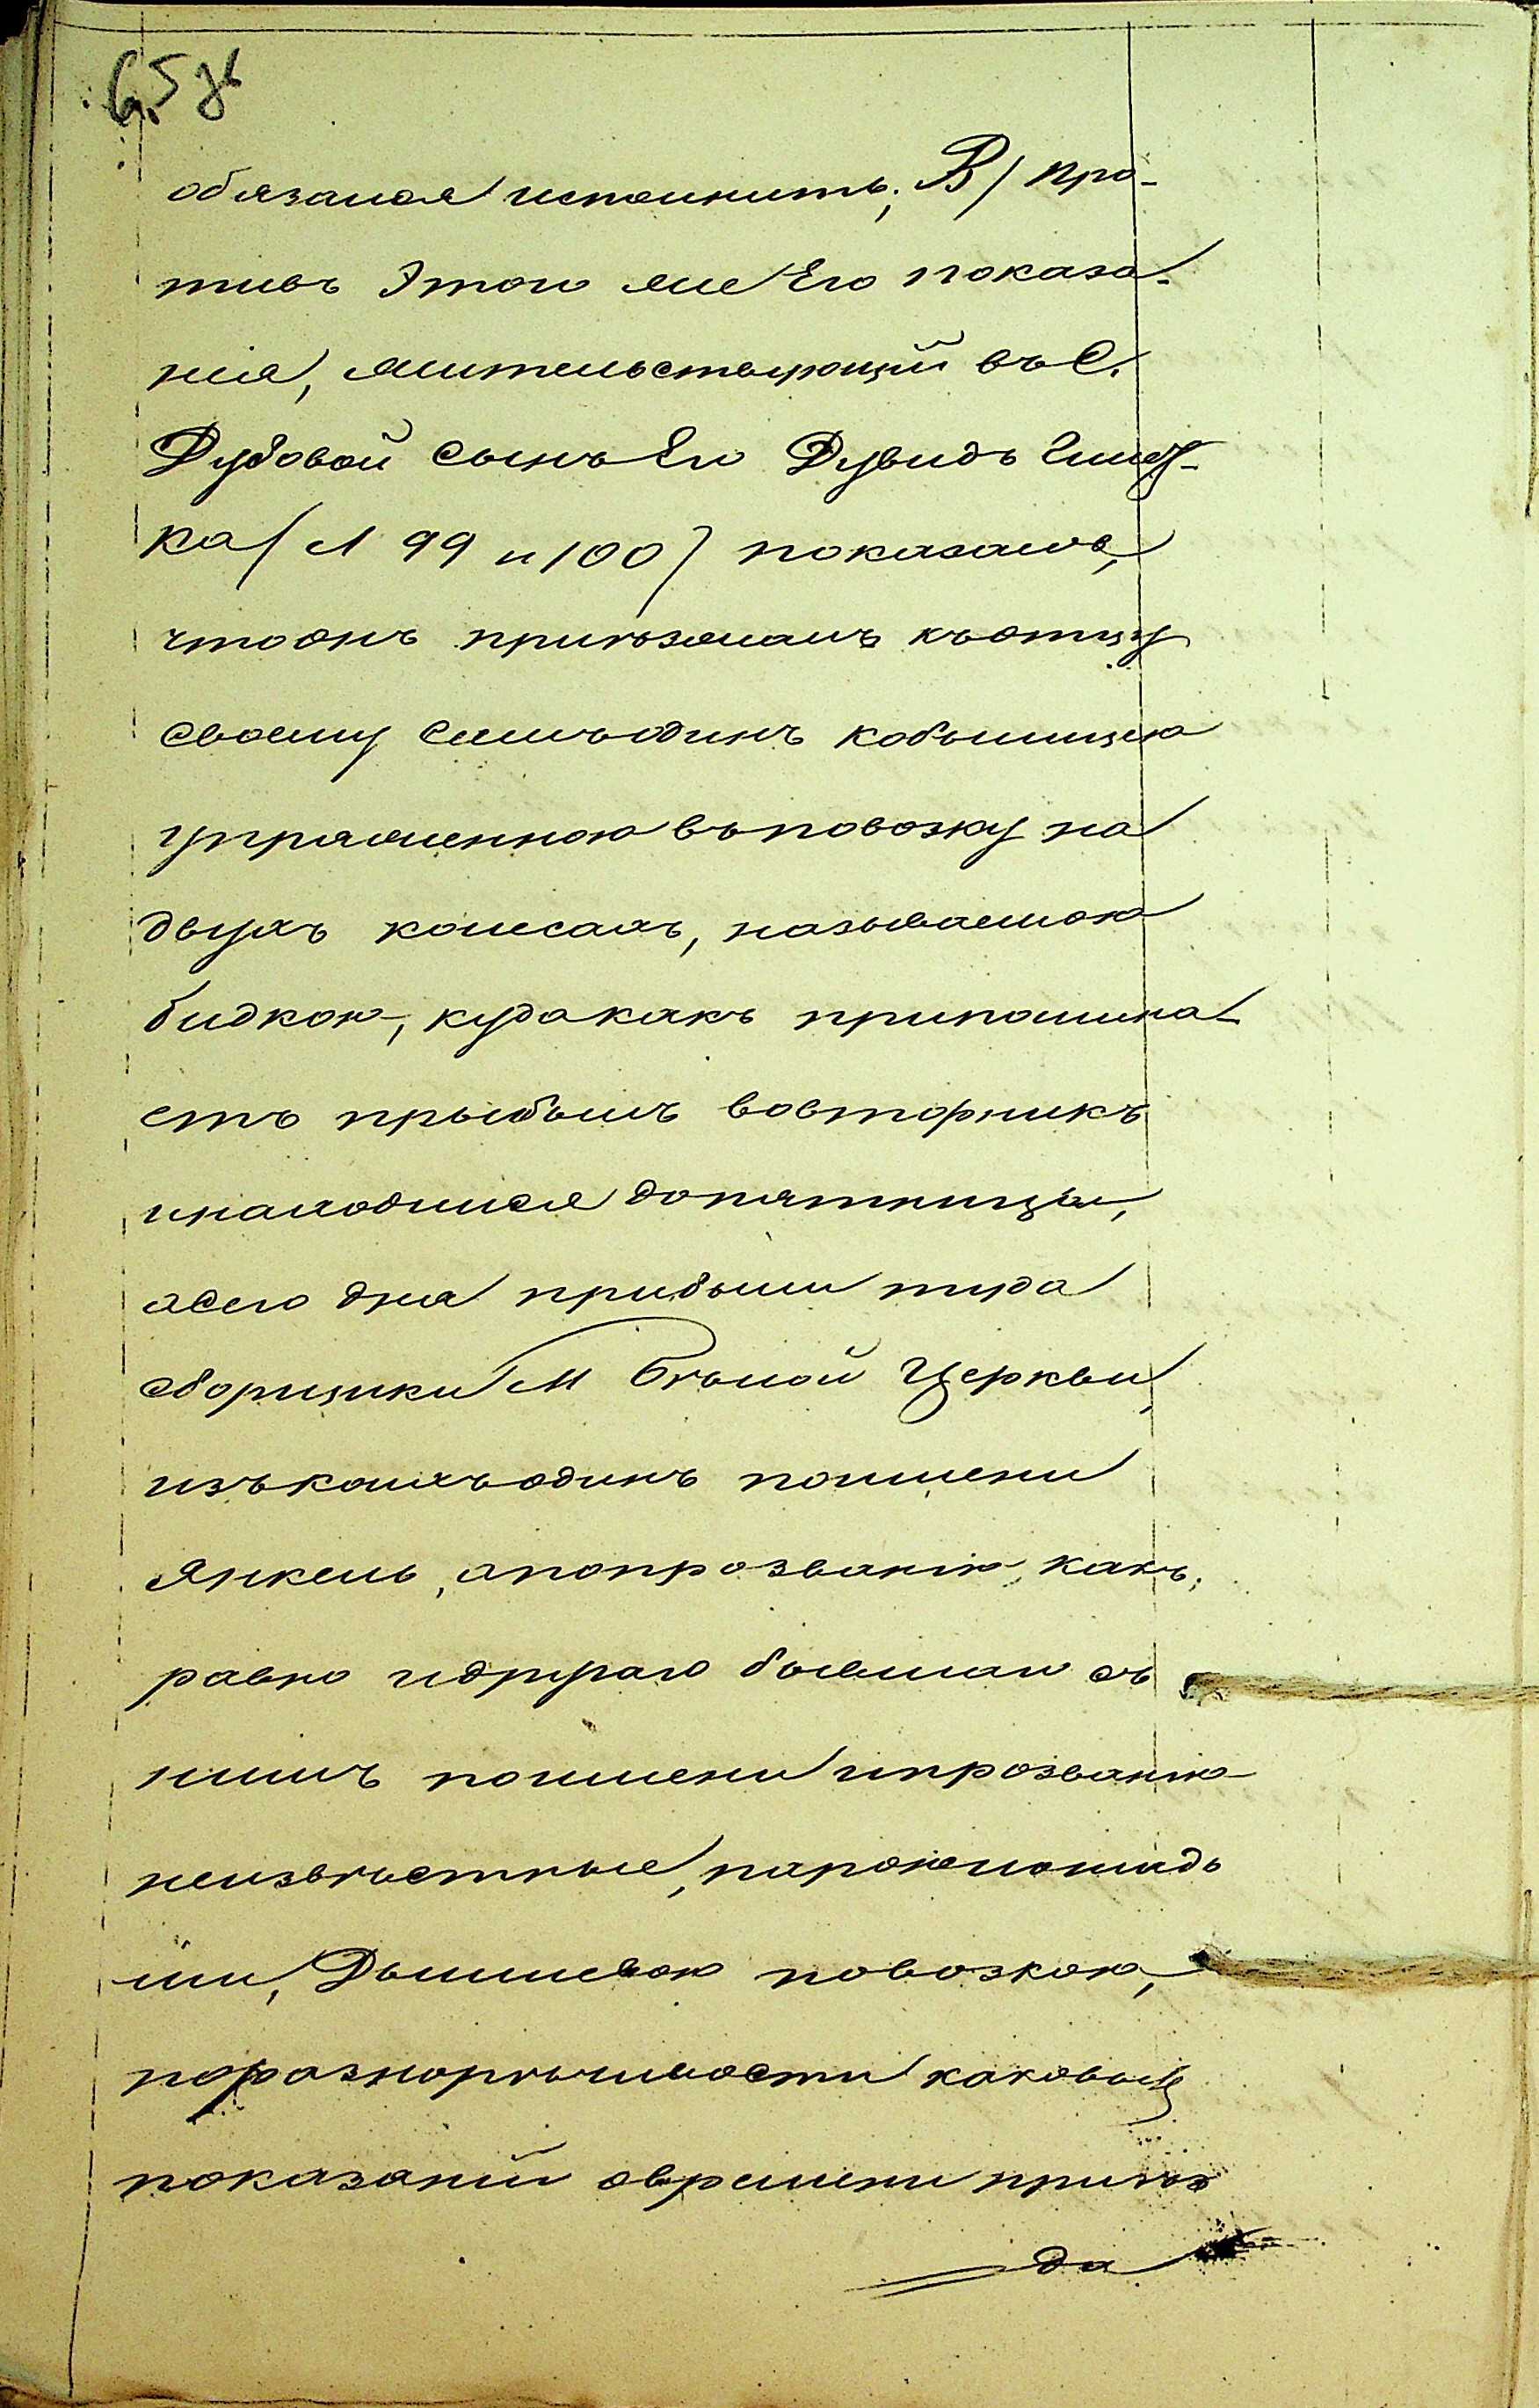 65 зв
обязался исполнить; В) Про-
тивъ Этого же Его показа-
нія, жительствующій въ С.
Дубовой сынъ Его Дувидъ
ка (л 99 и 100) показалъ,
что онъ приѣзжалъ къ отцу
своему Самъ одинъ кобылицею
упряженною въ повозку на
двухъ колесахъ, называемою
бидкою, куда какъ припомина-
етъ прыбылъ во вторникъ
и находился до пятницы,
а сего дня прибыли туда
сборщики М Бѣлой Церкви,
изъ коихъ одинъ по имени
Янкель, а по прозванію, какъ
равно и другаго бывшаго съ
нимъ по имени и прозванію
неизвѣстные, парою лошадь
ми, Дышлевою повозкою,
по разнорѣчивости каковыхъ
показаній о времени приѣз
да